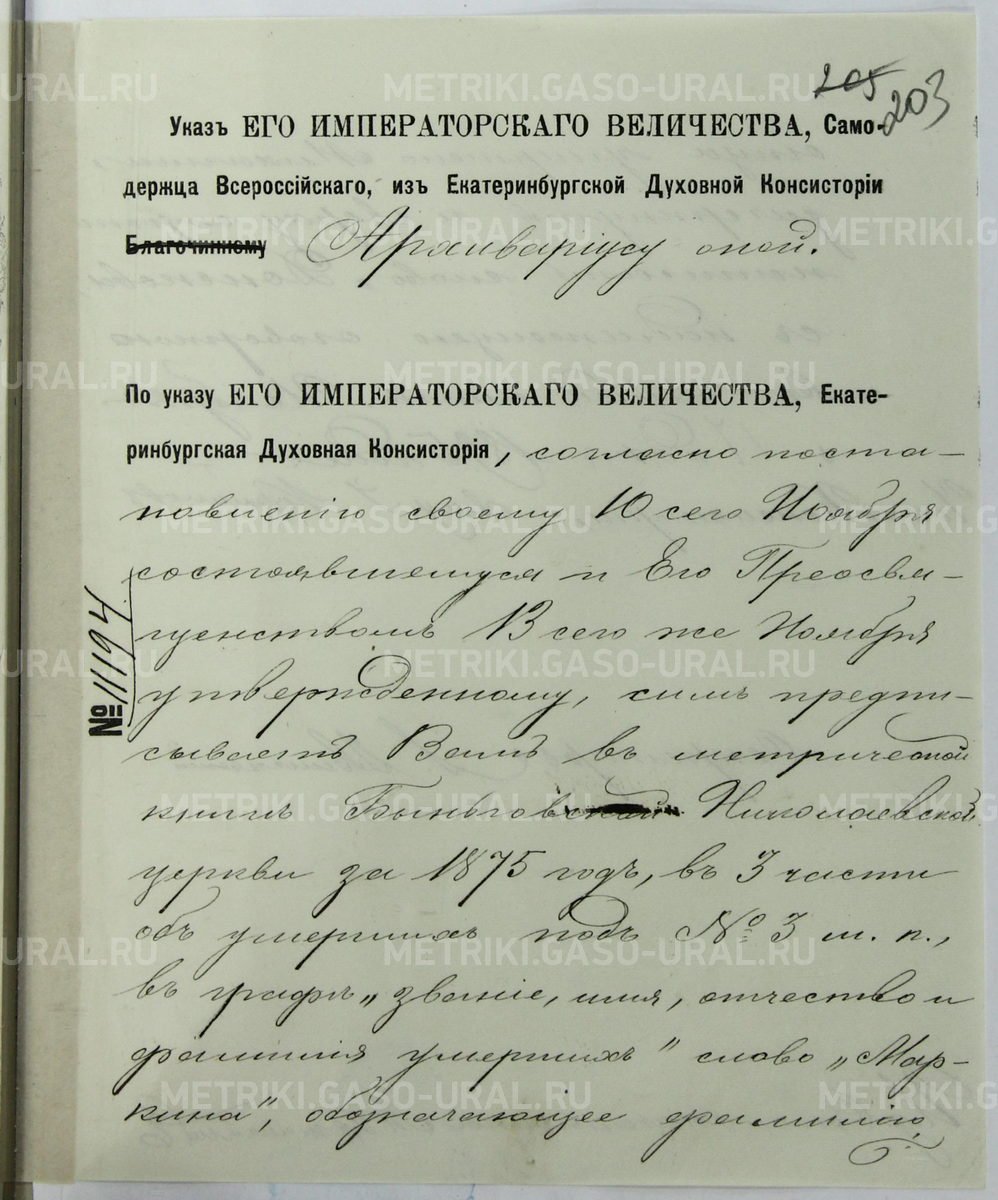 205
203
Указъ ЕГО ИМПЕРАТОРСКАГО ВЕЛИЧЕСТВА, Само-
держца Всероссійскаго, изъ Екатеринбургской Духовной Консисторіи
Благочинному Архиваріусу оной.
По указу ЕГО ИМПЕРАТОРСКАГО ВЕЛИЧЕСТВА, Екате-
ринбургская Духовная Консисторія, согласно поста-
новленію своему 10 сего Ноября
состоявшемуся и Его Преосвя-
щенствомъ 13 сего же Ноября
утвержденному, симъ предпи-
сываетъ Вамъ въ метрической
книгѣ Быньговской Николаевской
церкви за 1875 годъ, въ 3 части
объ умершихъ подъ № 3 м. п.,
въ графѣ „званіе, имя, отчество и
фамилія умершихъ" слово „Мар-
кина", обозначающее фамилію
№ 11194
METRIKI.GASO-URAL.RU